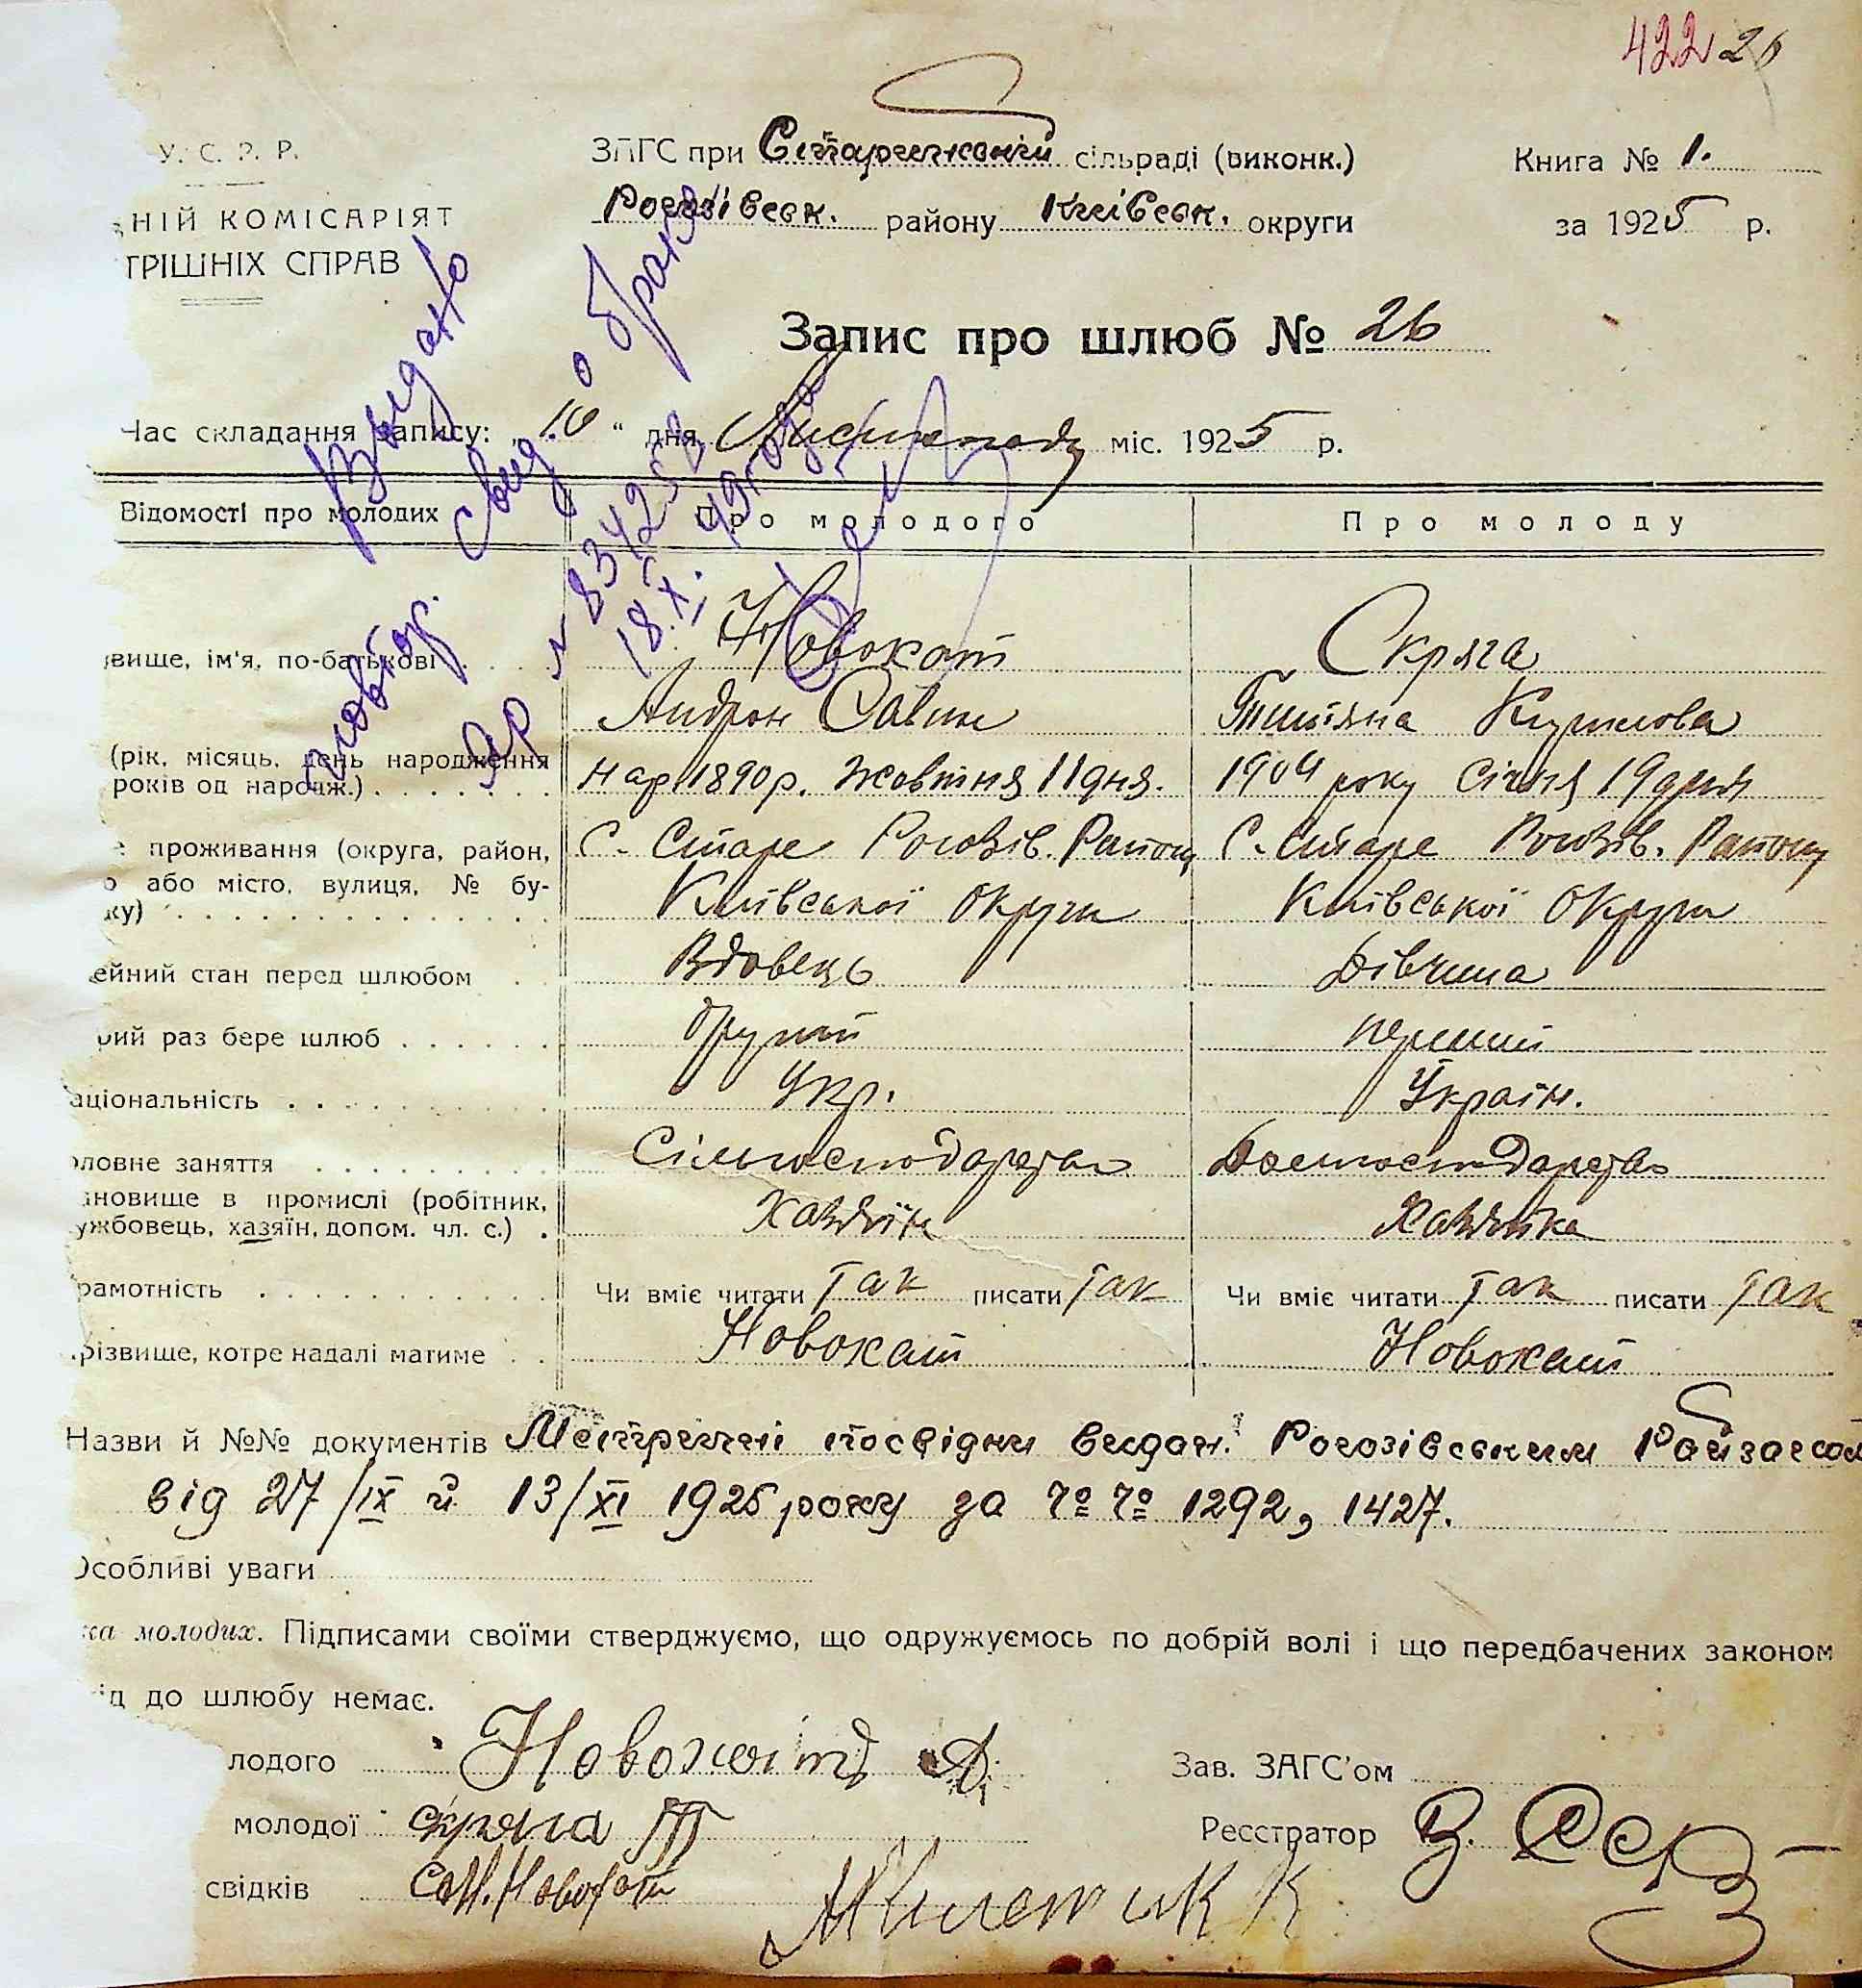 422 26
У. С. Р. Р.
ЗАГС при Старинській сільраді (виконк.)
Книга № 1.
НІЙ КОМІСАРІЯТ
Рогозівськ. району Київськ. округи
за 1925 р.
ТРІШНІХ СПРАВ
Запис про шлюб № 26
Час складання запису: „16“ дня Листопаду міс. 1925 р.
Выдано
повтор. свид. о браке
ЯР № 834253
18.XI. 49 года
Відомості про молодих
Про молодого
Про молоду
вище, ім'я, по-батькові
Новохат
Скряга
Андрон Савин
Тетіяна Кирилова
(рік, місяць, день народження
років од народж.)
Нар 1890 р. Жовтня 11 дня.
1904 року Січня 19 дня
проживання (округа, район,
о або місто, вулиця, № бу-
ку)
С. Старе Рогозів. Району
С. Старе Рогозів. Району
Київської Округи
Київської Округи
ейний стан перед шлюбом
Вдовець
Дівчина
рий раз бере шлюб
другий
перший
аціональність
Укр.
Україн.
оловне заняття
Сільгосподарство
Домгосподарство
ановище в промислі (робітник,
ужбовець, хазяїн, допом. чл. с.)
Хазяїн
Хазяйка
рамотність
Чи вміє читати Так писати Так
Чи вміє читати Так писати Так
різвище, котре надалі матиме
Новохат
Новохат
Назви й №№ документів Метричні посвідки видан. Рогозівським Райзагсом
від 27/IX й 13/XI 1925 року за №№ 1292, 1427.
Особливі уваги
ка молодих. Підписами своїми стверджуємо, що одружуємось по добрій волі і що передбачених законом
ід до шлюбу немає.
лодого Новохатъ А.
Зав. ЗАГС'ом
молодої Скряга Т
Реєстратор В.
свідків Новохат